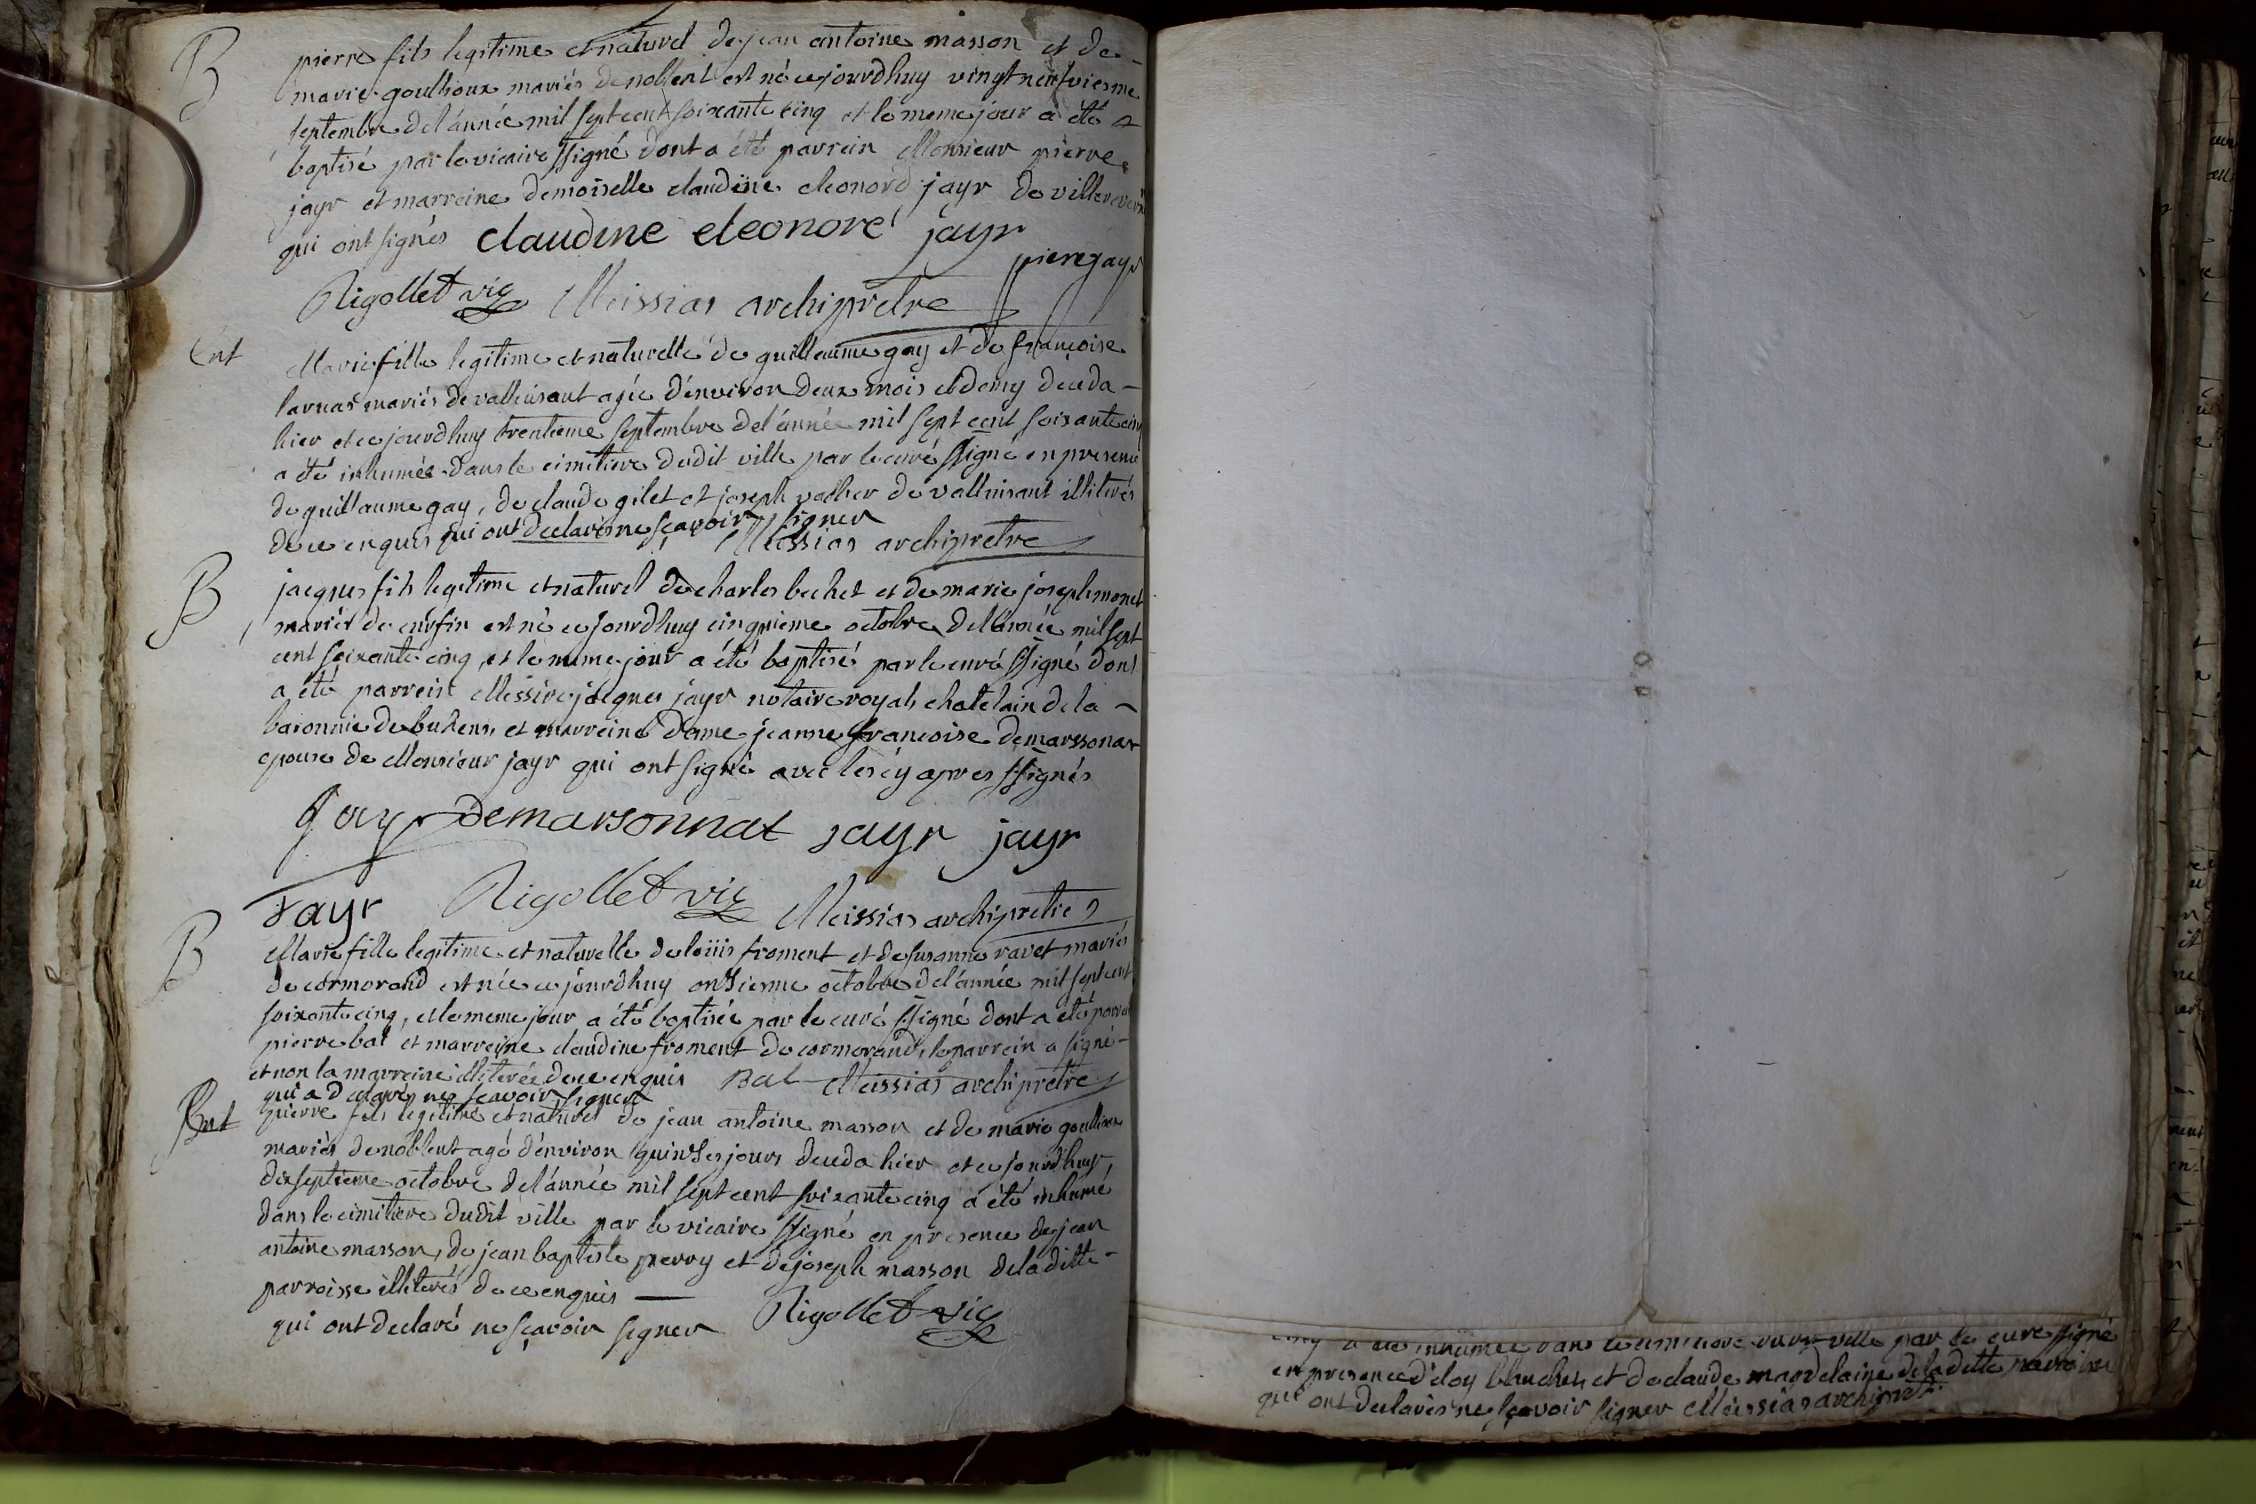 B
pierre fils legitime et naturel de jean antoine masson et de
marie goullioux mariés de noblent est né ce jourdhuy vingt neufviesme
septembre de l'année mil sept cent soixante cinq et le meme jour a été
baptisé par le vicaire ssigné dont a été parrein Monsieur pierre
jayr et marreine demoiselle claudine eleonord jayr de villereversure
qui ont signés claudine eleonore jayr
pierre jayr
Rigollet vic Meissias archiprètre
Ent
Marie fille legitime et naturelle de guillaume gay et de françoise
mariés de valluisant agée d'environ deux mois et demy deceda
hier et ce jourdhuy trentieme septembre de l'année mil sept cent soixante cinq
a été inhumée dans le cimitiere dudit ville par le curé ssigné en presence
de guillaume gay, de claude gilet et joseph vacher de valluisant illiterés
de ce enquis qui ont declarés ne sçavoir signer
Meissias archiprètre
B
jacques fils legitime et naturel de charles bechet et de marie joseph monet
mariés de est né ce jourdhuy cinquieme octobre de l'année mil sept
cent soixante cinq, et le meme jour a été baptisé par le curé ssigné dont
a été parrein Messire jacques jayr notaire royal, chatelain de la
baronnie de buhens, et marreine dame jeanne françoise demarssonas
epouse de Monsieur jayr qui ont signé avec les cy apres ssignés
Jayr demarsonnat jayr jayr
Jayr Rigollet vic Meissias archiprètre
B
Marie fille legitime et naturelle de loüis froment et de susanne ravet mariés
de cormorand est née ce jourdhuy onsiesme octobre de l'année mil sept cent
soixante cinq, et le meme jour a été baptisée par le curé ssigné dont a été parrein
pierre bal et marreine claudine froment de cormorand, le parrein a signé
et non la marreine illiterée de ce enquis Bal Meissias archiprètre
qui a declaré ne sçavoir signer
Ent
pierre fils legitime et naturel de jean antoine masson et de marie goullioux
mariés de noblent agé d'environ quinse jours deceda hier et ce jourdhuy
dixseptieme octobre de l'année mil sept cent soixante cinq a été inhumé
dans le cimitiere dudit ville par le vicaire ssigné en presence de jean
antoine masson, de jean baptiste perroy et de joseph masson de la ditte
parroisse illiterés de ce enquis
qui ont declaré ne sçavoir signer Rigollet vic
cinq a été inhumée dans le cimitiere dudit ville par le curé ssigné
en presence d'eloy et de claude mandelaine de la ditte parroisse
qui ont declarés ne sçavoir signer Meissias archiptr.